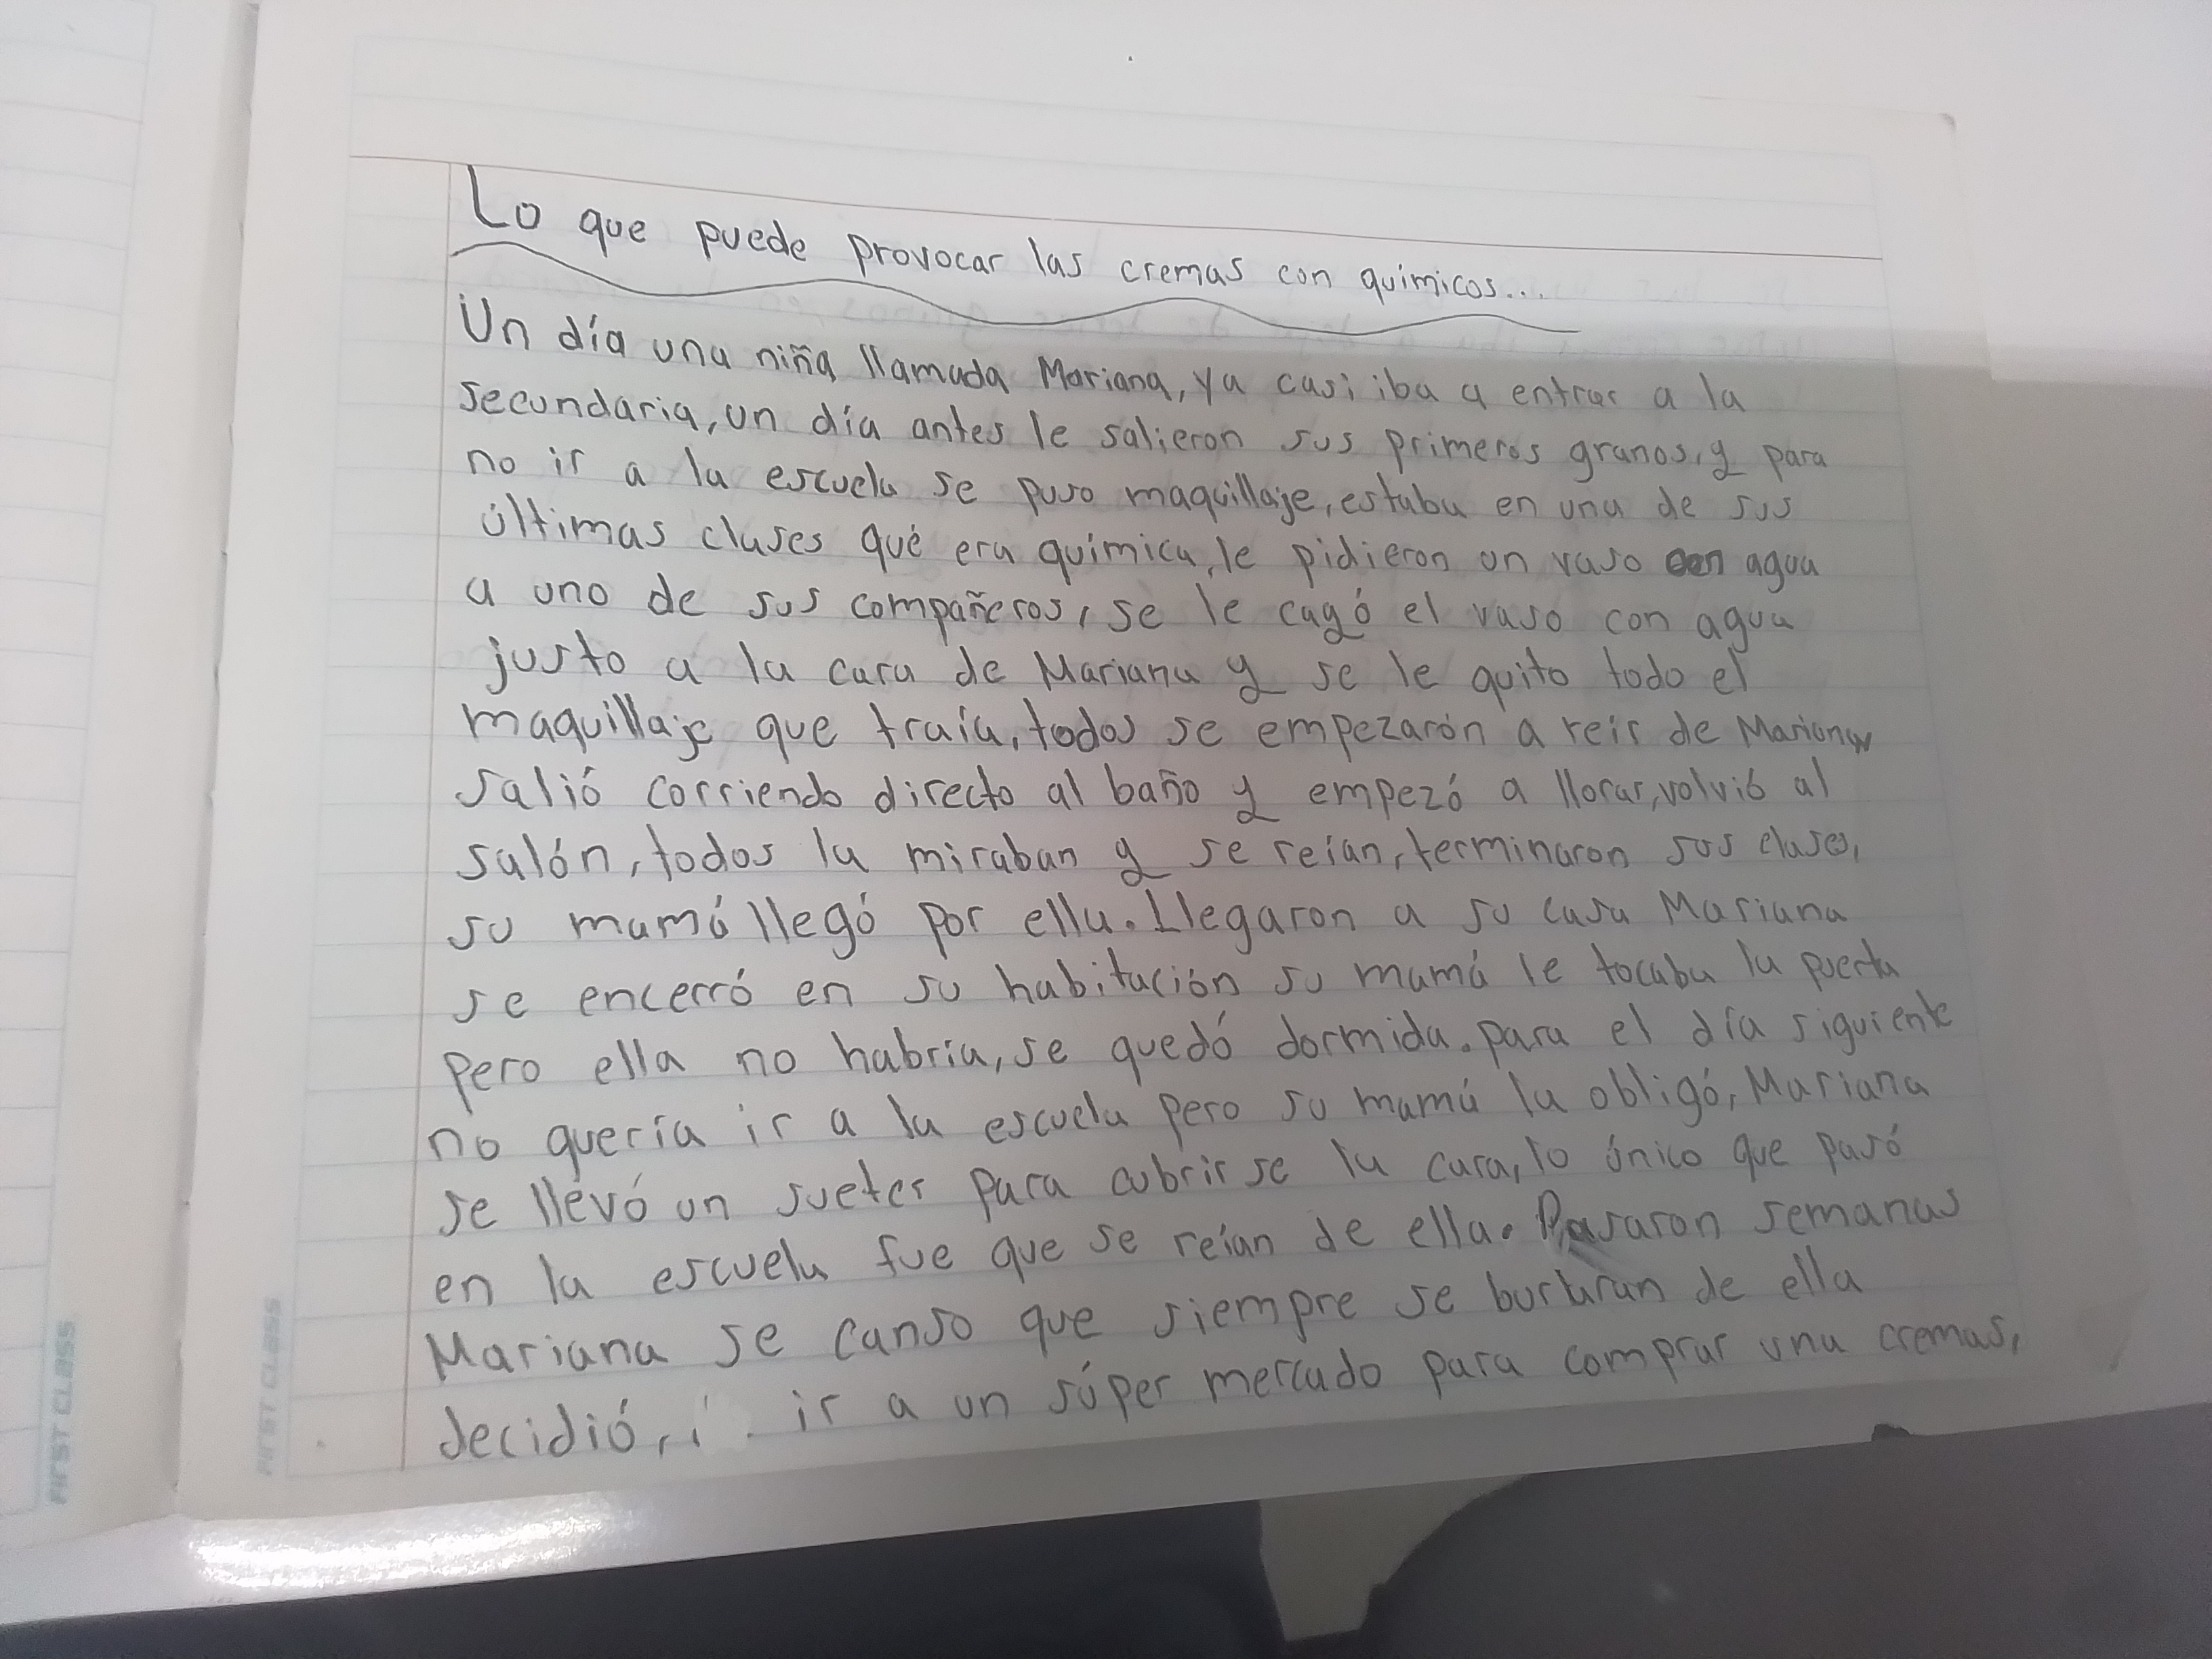 Lo que puede provocar las cremas con químicos...
Un día una niña llamada Mariana, ya casi iba a entrar a la
secundaria, un día antes le salieron sus primeros granos, y para
no ir a la escuela se puso maquillaje, estaba en una de sus
últimas clases qué era química, le pidieron un vaso con agua
a uno de sus compañeros, se le cagó el vaso con agua
justo a la cara de Mariana y se le quito todo el
maquillaje que traía, todos se empezarón a reir de Mariana
salió corriendo directo al baño y empezó a llorar, volvió al
salón, todos la miraban y se reían, terminaron sus clases,
su mamá llegó por ella. Llegaron a su casa Mariana
se encerró en su habitación su mamá le tocaba la puerta
pero ella no habría, se quedó dormida. para el día siguiente
no quería ir a la escuela pero su mamá la obligó, Mariana
se llevó un sueter para cubrirse la cara, lo único que pasó
en la escuela fue que se reían de ella. Pasaron semanas
Mariana se canso que siempre se burlaran de ella
decidió, ir a un súper mercado para comprar una cremas,
FIRST CLASS
FIRST CLASS